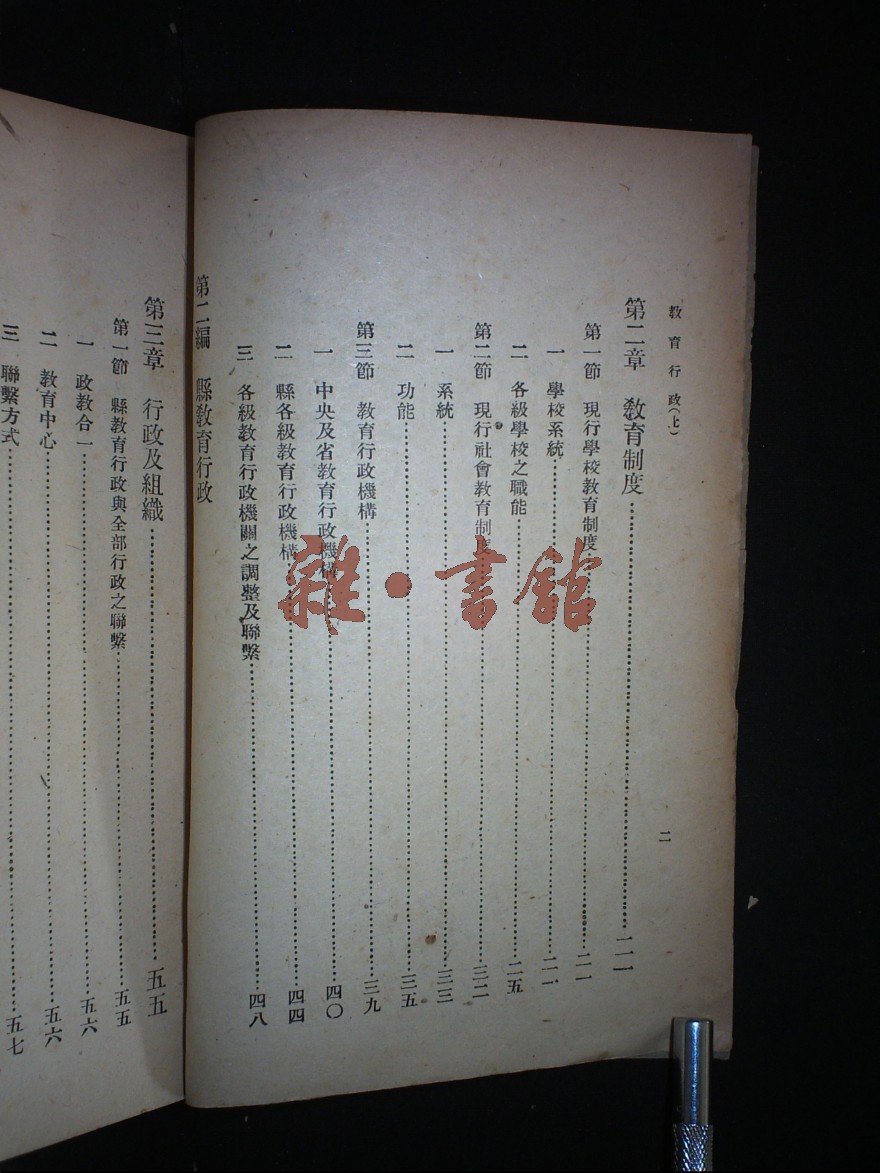 教育行政(上)
二
第二章 教育制度……二一
第一節 現行學校教育制度……二一
一 學校系統……二一
二 各級學校之職能……二五
第二節 現行社會教育制度……三二
一 系統……三三
二 功能……三五
第三節 教育行政機構……三九
一 中央及省教育行政機構……四〇
二 縣各級教育行政機構……四四
三 各級教育行政機關之調整及聯繫……四八
第二編 縣教育行政
第三章 行政及組織……五五
第一節 縣教育行政與全部行政之聯繫……五五
一 政教合一……五六
二 教育中心……五六
三 聯繫方式……五七
雜·書館